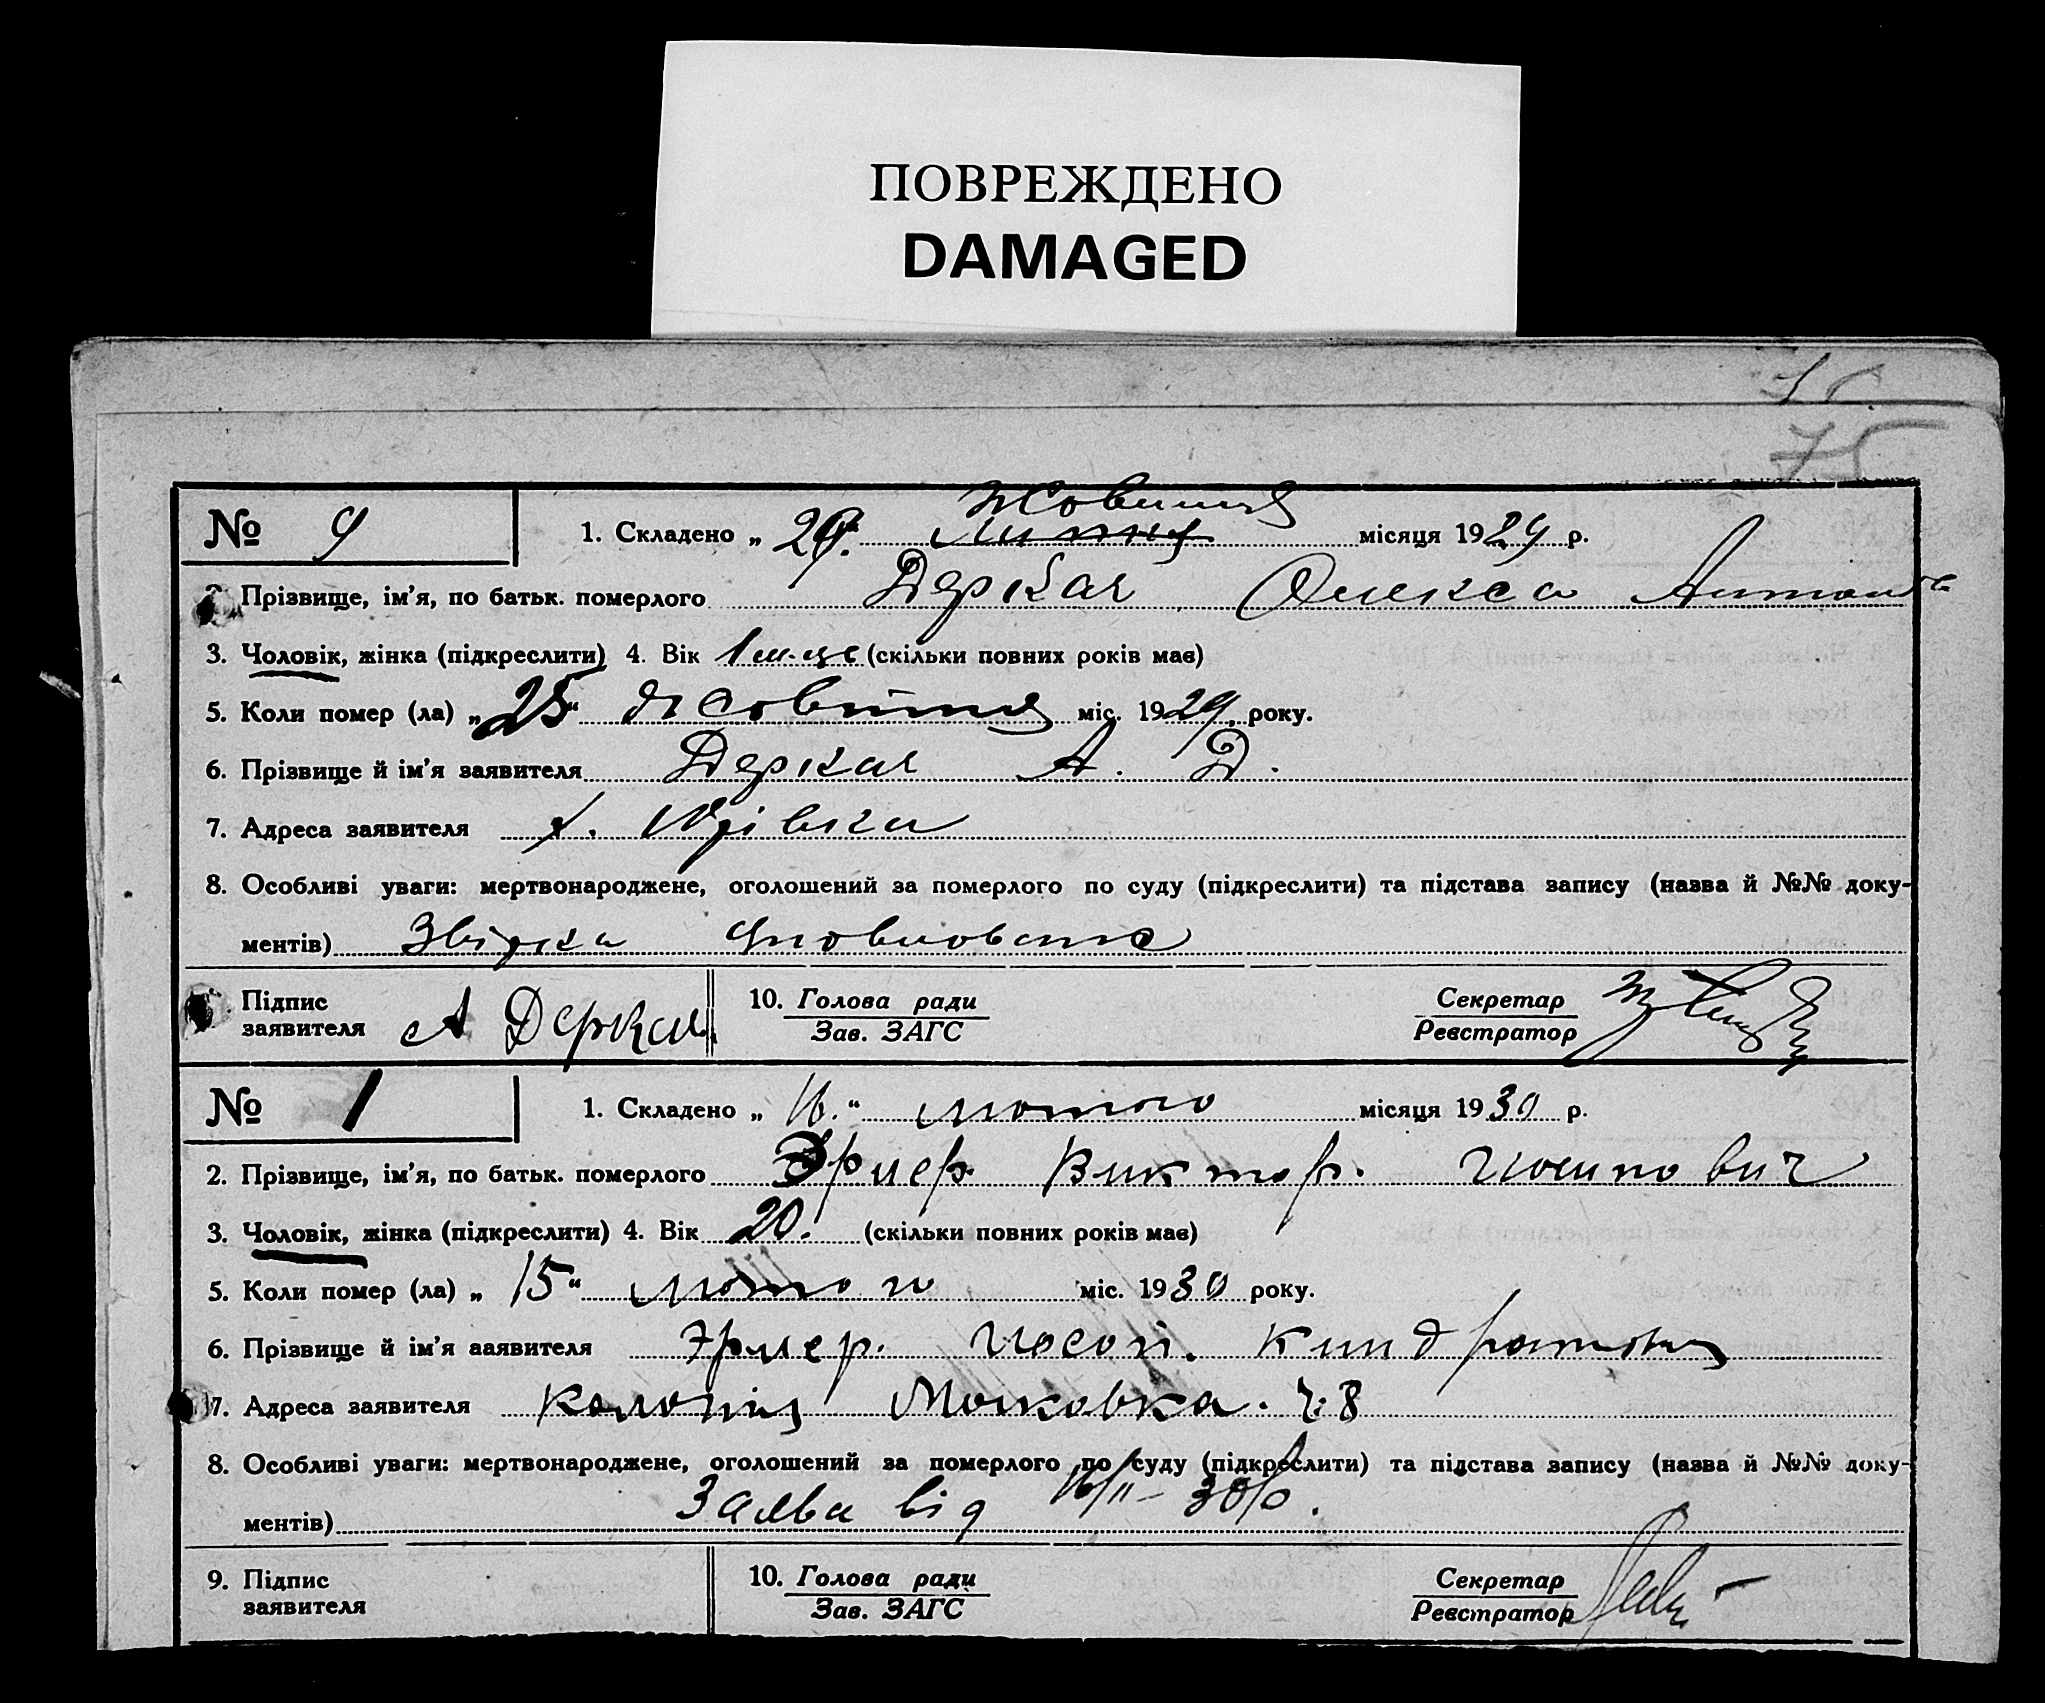 ПОВРЕЖДЕНО
DAMAGED
75
№ 9
1. Складено „ 29. Жовтня Липня місяця 1929 р.
Прізвище, ім'я, по батьк. померлого Деркач Олекса Антонов
3. Чоловік, жінка (підкреслити) 4. Вік 1 м-ць (скільки повних років має)
5. Коли помер (ла) „25“ жовтня міс. 1929 року.
6. Прізвище й ім'я заявителя Деркач А. Д.
7. Адреса заявителя х.
8. Особливі уваги: мертвонароджене, оголошений за померлого по суду (підкреслити) та підстава запису (назва й №№ доку-
ментів)
Підпис заявителя А Деркач
10. Голова ради
Зав. ЗАГС
Секретар
Реєстратор
№ 1
1. Складено „ 16.“ лютого місяця 1930 р.
2. Прізвище, ім'я, по батьк. померлого Эрлер Виктор.
3. Чоловік, жінка (підкреслити) 4. Вік 20. (скільки повних років має)
5. Коли помер (ла) „ 15“ лютого міс. 1930 року.
6. Прізвище й ім'я заявителя Эрлер. Иосип. Киндратович
7. Адреса заявителя Колонія ч. 8
8. Особливі уваги: мертвонароджене, оголошений за померлого по суду (підкреслити) та підстава запису (назва й №№ доку-
ментів) Заява від 16/II – 30 р.
9. Підпис
заявителя
10. Голова ради
Зав. ЗАГС
Секретар
Реєстратор